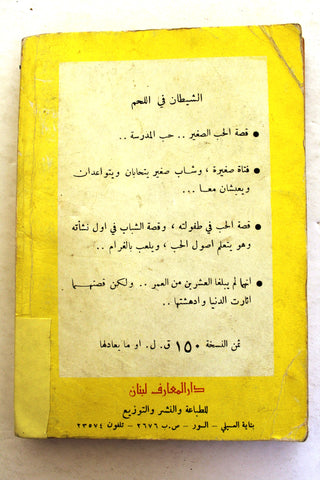 الشيطان في اللحم
● قصة الحب الصغير .. حب المدرسة ..
● فتاة صغيرة ، وشاب صغير يتحابان ويتواعدان
ويعيشان معا ...
● قصة الحب في طفولته ، وقصة الشباب في اول نشأته
وهو يتعلم اصول الحب ، ويلعب بالغرام ..
● انهما لم يبلغا العشرين من العمر .. ولكن قصتهما
اثارت الدنيا وادهشتها ..
ثمن النسخة ١٥٠ ق. ل. او ما يعادلها
دار المعارف لبنان
للطباعة والنشر والتوزيع
بناية العسيلي - السور - ص.ب ٢٦٧٦ - تلفون ٢٣٥٧٤